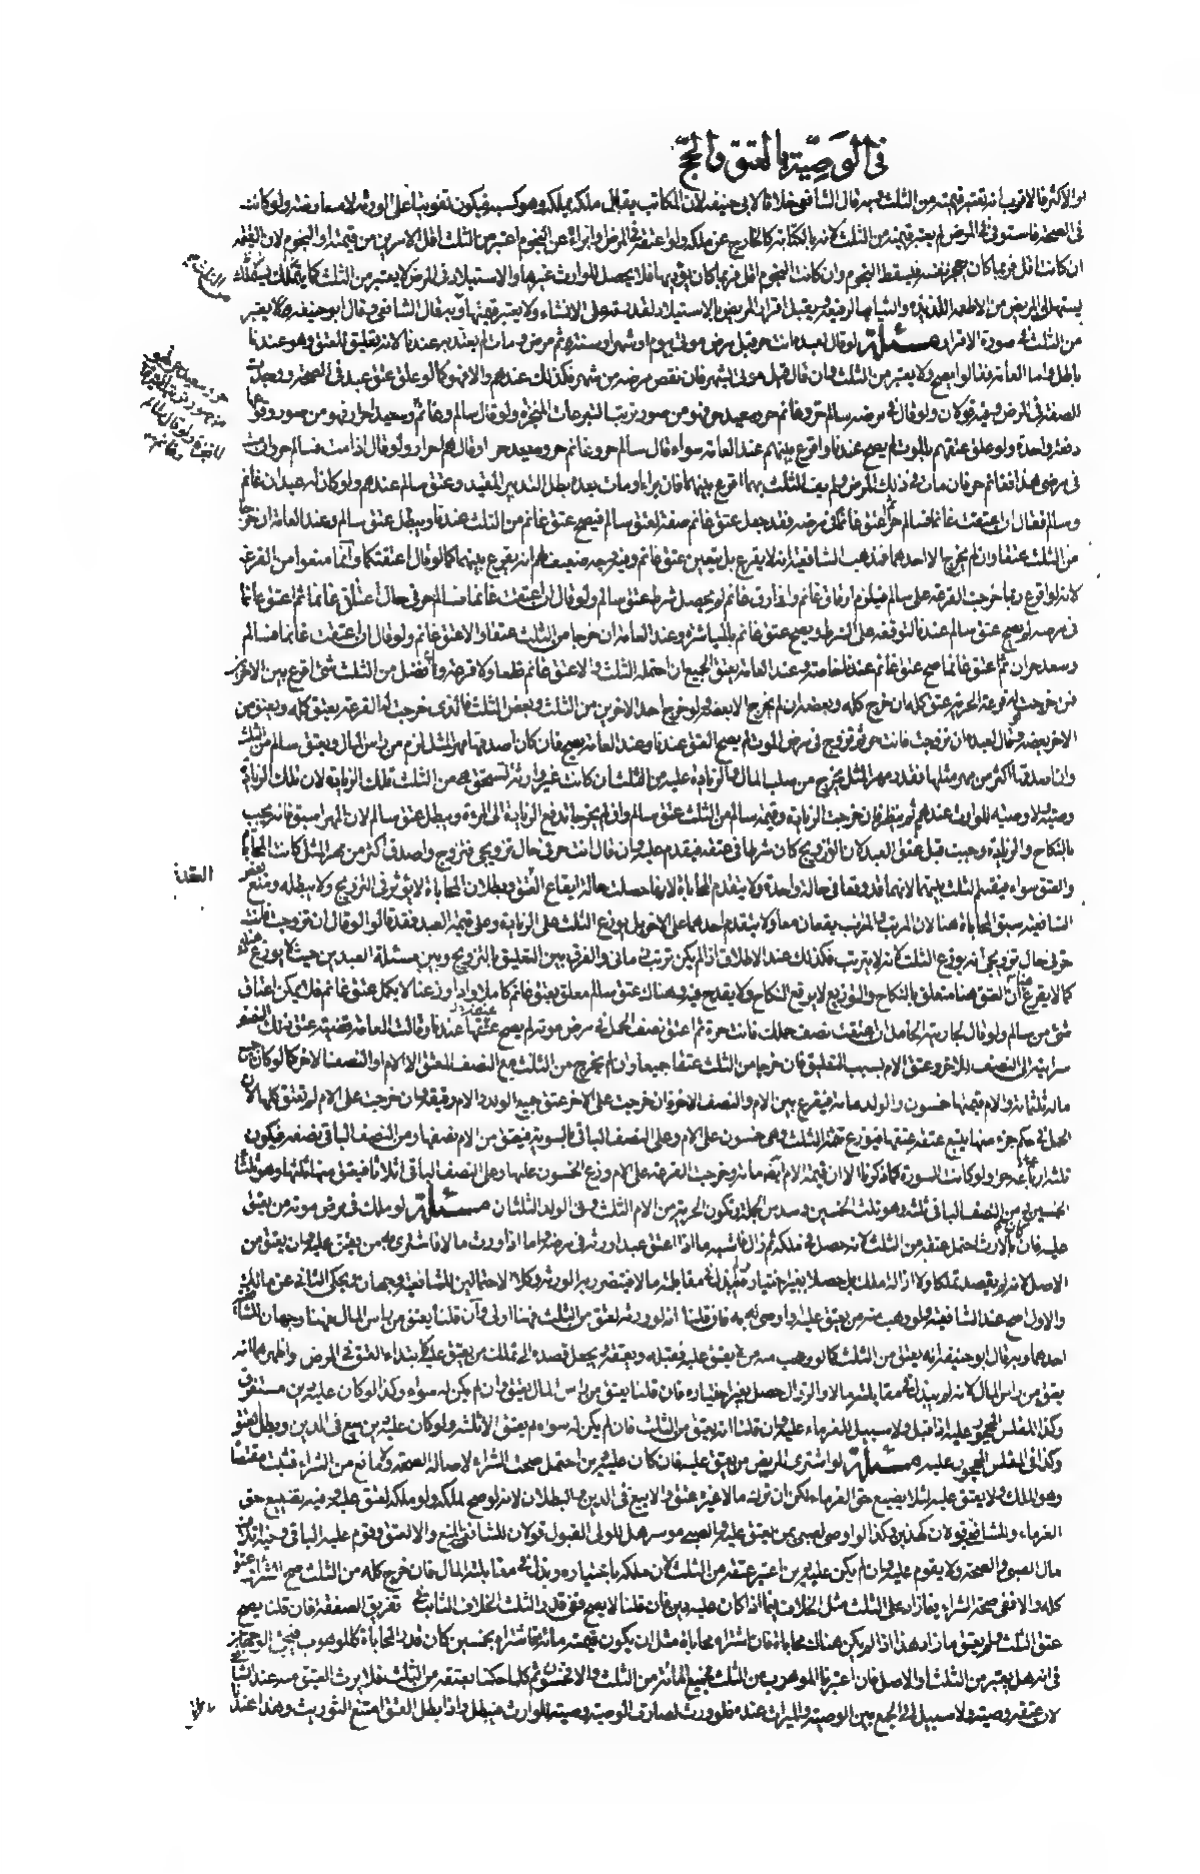 في الوصية بالعتق والحج
او الاكثر فالاقرب انه تعتبر قيمته من الثلث وبه قال الشافعي خلافا لابي حنيفة لان المكاتب يقابل ملكه بملكه وهو كسبه فيكون تفويتا على الورثة لا معاوضة ولو كاتبه
في الصحة فاستوفى في المرض لم يعتبر قيمته من الثلث لانه بالكتابة كالخارج عن ملكه ولو اعتقه في المرض او ابراه عن النجوم اعتبر من الثلث اقل الامرين من قيمته او النجوم لان القيمة
ان كانت اقل فربما كان يعجز نفسه فيسقط النجوم وان كانت النجوم اقل فربما كان يؤديها فلا يحصل للوارث غيرها والاستيلاد في المرض لا يعتبر من الثلث كما يتملك
يستهلكه المريض من الاطعمة اللذيذة والثياب الرفيعة ويقبل اقرار المريض بالاستيلاد لقدرته على الانشاء ولا يعتبر قيمتها وبه قال الشافعي وقال ابو حنيفة يعتبر
من الثلث في صورة الاقرار مسئلة لو قال لعبده انت حر قبل مرض موتي بيوم او شهر او سنة ثم مرض ومات لم يعتد به عندنا لانه تعليق العتق وهو عندنا
باطل واما العامة فقالوا يصح ولا يعتبر من الثلث وان قال قبل موتي بشهر فان نقص مرضه من شهر فكذلك عندهم والا فهو كما لو علق عتق عبد في الصحة ووجدت
الصفة في المرض وفيه قولان ولو قال في مرضه سالم حر وغانم حر وسعيد حر فهو من صور ترتيب التبرعات المنجزة ولو قال سالم وغانم وسعيد احرار فهو من صور وقوعها
دفعة واحدة ولو علق عتقهم بالموت لم يصح عندنا واقرع بينهم عند العامة سواء قال سالم حر وغانم حر وسعيد حر او قال هم احرار ولو قال اذا مت فسالم حر وان مت
في مرضي هذا فغانم حر فان مات في ذلك المرض ولم يف الثلث بهما اقرع بينهما فان برا ومات بعده بطل التدبير المقيد وعتق سالم عندهم ولو كان له عبدان غانم
وسالم فقال ان اعتقت غانما فسالم حر ثم اعتق غانما في مرضه فقد جعل عتق غانم صفة لعتق سالم فيصح عتق غانم من الثلث عندنا ويبطل عتق سالم وعند العامة ان خرجا
من الثلث عتقا وان لم يخرج الا احدهما فمذهب الشافعية انه لا يقرع بل يتعين عتق غانم وفيه وجه ضعيف لهم انه يقرع بينهما كما لو قال اعتقتكما وانما منعوا من القرعة
لانه لو اقرع ربما خرجت القرعة على سالم فيلزم ارقاق غانم واذا رق غانم لم يحصل شرط عتق سالم ولو قال ان اعتقت غانما فسالم حر في حال اعتاق غانما ثم اعتق غانما
في مرضه لم يصح عتق سالم عندنا لتوقفه على الشرط ويصح عتق غانم بالمباشرة وعند العامة ان خرجا من الثلث عتقا والا عتق غانم ولو قال ان اعتقت غانما فسالم
وسعد حران ثم اعتق غانما صح عتق غانم عندنا خاصة وعند العامة يعتق الجميع ان احتمله الثلث والا عتق غانم قطعا ولا قرعة ولو فضل من الثلث شئ اقرع بين الاخرين
فمن خرجت له قرعة الحرية عتق كله ان خرج كله وبعضه ان لم يخرج الا بعضه ولو خرج احد الاخرين من الثلث وبعض الثالث فالذي خرجت له القرعة يعتق كله ويعتق من
الاخر بعضه ولو قال لعبده ان تزوجت فانت حر ثم تزوج في مرض الموت لم يصح العتق عندنا وعند العامة يصح فان كان اصدقها مهر المثل لزم من راس المال ويعتق سالم من الثلث
وان اصدقها اكثر من مهر مثلها فقدر مهر المثل يخرج من صلب المال والزيادة عليه من الثلث ان كانت غير وارثة من الثلث فتلك الزيادة لان تلك الزيادة
وصية ولا وصية للوارث عندهم ثم ينظر فان خرجت الزيادة وقيمة سالم من الثلث عتق سالم وان لم يخرجا تدفع الزيادة الى المراة ويبطل عتق سالم لان المهر اسبق فانه يجب
بالنكاح والزيادة وجبت قبل عتق العبد لان التزويج كان شرطا في عتقه فيقدم عليه وان قال انت حر في حال تزويجي فتزوج واصدق اكثر من مهر المثل كانت المحاباة
والعتق سواء فيقسم الثلث بينهما لانهما قد وقعا في حالة واحدة ولا يتقدم المحاباة لانها حصلت حالة ايقاع العتق وبطلان المحاباة لا يؤثر في التزويج ولا يبطله ومنع بعض
الشافعية سبق المحاباة هنا لان المرتب والمرتب يقعان معا ولا يتقدم احدهما على الاخر بل يوزع الثلث على الزيادة وعلى قيمة العبد فقد قالوا لو قال ان تزوجت فانت
حر في حال تزويجي انه يوزع الثلث لانه لا يترتب فكذلك عند الاطلاق اذا لم يكن ترتيب زماني والفرق بين التعليق بالتزويج وبين مسئلة العبدين حيث لا يوزع هناك
كما لا يقرع ان العتق هنا متعلق بالنكاح والتوزيع لا يرفع النكاح ولا يقدح فيه وهناك عتق سالم معلق بعتق غانم كاملا واذا وزعنا لا يكمل عتق غانم فلا يمكن اعتاق
شئ من سالم ولو قال لجاريته الحامل ان اعتقت نصف حملك فانت حرة ثم اعتق نصف الحمل في مرض موته لم يصح عتقها عندنا وقالت العامة قضية عتق ذلك النصف
سرايته الى النصف الاخر وعتق الام بسبب التعليق فان خرجا من الثلث عتقا جميعا وان لم يخرج من الثلث مع النصف المعتق الا الام او النصف الاخر كما لو كان جميع
ماله ثلثمائة والام قيمتها خمسون والولد مائة فيقرع بين الام والنصف الاخر فان خرجت على الاخر عتق جميع الولد والام رقيقة وان خرجت على الام لم تعتق كلها لان
الحمل في حكم جزء منها يتبع عتقه عتقها فيوزع حصة الثلث وهي خمسون على الام وعلى النصف الباقي بالسوية فيعتق من الام نصفها ومن النصف الباقي نصفه فيكون
ثلثة ارباعه حرا ولو كانت الصورة كما ذكرنا الا ان قيمة الام ايضا مائة وخرجت القرعة على الام وزع الخمسون عليها وعلى النصف الباقي اثلاثا فيعتق منها ثلثها وهو ثلثا
الخمسين ومن النصف الباقي ثلثه وهو ثلث الخمسين وسدس الجملة فتكون الحرية من الام الثلث ومن الولد الثلثان مسئلة لو ملك في مرض موته من يعتق
عليه فان كان بالارث احتمل عتقه من الثلث لانه حصل في ملكه ثم زال فاشبه ما اذا اعتق عبدا ورثه في مرضه او ما اذا ورث مالا فاشترى به من يعتق عليه وان يعتق من
الاصل لانه لم يقصد تملكا ولا ازالة ملك بل حصلا بغير اختياره ولم يبذل في مقابلته مالا فيتضرر به الورثة وكلا الاحتمالين للشافعية وجهان ويحكى الثاني عن مالك
والاول اصح عند الشافعية ولو وهب منه من يعتق عليه او اوصى له به فان قلنا انه لو ورثه لعتق من الثلث فهنا اولى وان قلنا يعتق من راس المال فهنا وجهان للشافعية
احدهما وبه قال ابو حنيفة انه يعتق من الثلث كما لو وهب منه من يعتق عليه فقبله ويعتقه يجعل قصده الى تملك من يعتق عليه كابتداء العتق في المرض واظهرهما انه
يعتق من راس المال لانه لم يبذل في مقابلته مالا والزوال حصل بغير اختياره فان قلنا يعتق من راس المال عتق وان لم يكن له سواه وكذا لو كان عليه دين مستغرق
وكذا المفلس المحجور عليه اذا قبل ولا سبيل للغرماء عليه وان قلنا انه يعتق من الثلث فان لم يكن له سواه لم يعتق الا ثلثه ولو كان عليه دين بيع في الدين وبطل العتق
وكذا في المفلس المحجور عليه مسئلة لو اشترى المريض من يعتق عليه فان كان عليه دين احتمل صحة الشراء لاصالة الصحة ولا مانع من الشراء فثبت مقتضاه
وهو الملك ولا يعتق عليه لئلا يضيع حق الغرماء لكن ان ترك مالا غيره عتق والا بيع في الدين والبطلان لانه لو صح لملكه ولو ملكه لعتق عليه وفيه تضييع حق
الغرماء وللشافعي قولان كهذين وكذا لو اوصى لصبي بمن يعتق عليه والصبي موسر هل للولي القبول قولان للشافعي المنع والا لعتق وقوم عليه الباقي وحينئذ
مال الصبي والصحة ولا يقوم عليه وان لم يكن عليه دين اعتبر عتقه من الثلث لان ملكه باختياره وبذل في مقابلته المال فان خرج كله من الثلث صح الشراء وعتق
كله والا ففي صحة الشراء فيما زاد على الثلث مثل الخلاف فيما اذا كان عليه دين فان قلنا لا يصح ففي قدر الثلث الخلاف الثابت في تفريق الصفقة فان قلنا يصح
عتق الثلث ولم يعتق ما زاد هذا اذا لم يكن هناك محاباة فان اشتراه محاباة مثل ان يكون قيمته مائة فاشتراه بخمسين كان قدر المحاباة كالموهوب فيجئ الوجهان
في انه هل يعتبر من الثلث او الاصل فان اعتبرنا الموهوب من الثلث فجميع المائة من الثلث والا فخمسون ثم كلما حكمنا بعتقه من الثلث فلا يرث العتيق منه عند الشافعية
لان عتقه وصية ولا سبيل الى الجمع بين الوصية والميراث عنده فلو ورث لصارت الوصية وصية للوارث فيبطل واذا بطل العتق امتنع التوريث وهذا عندنا